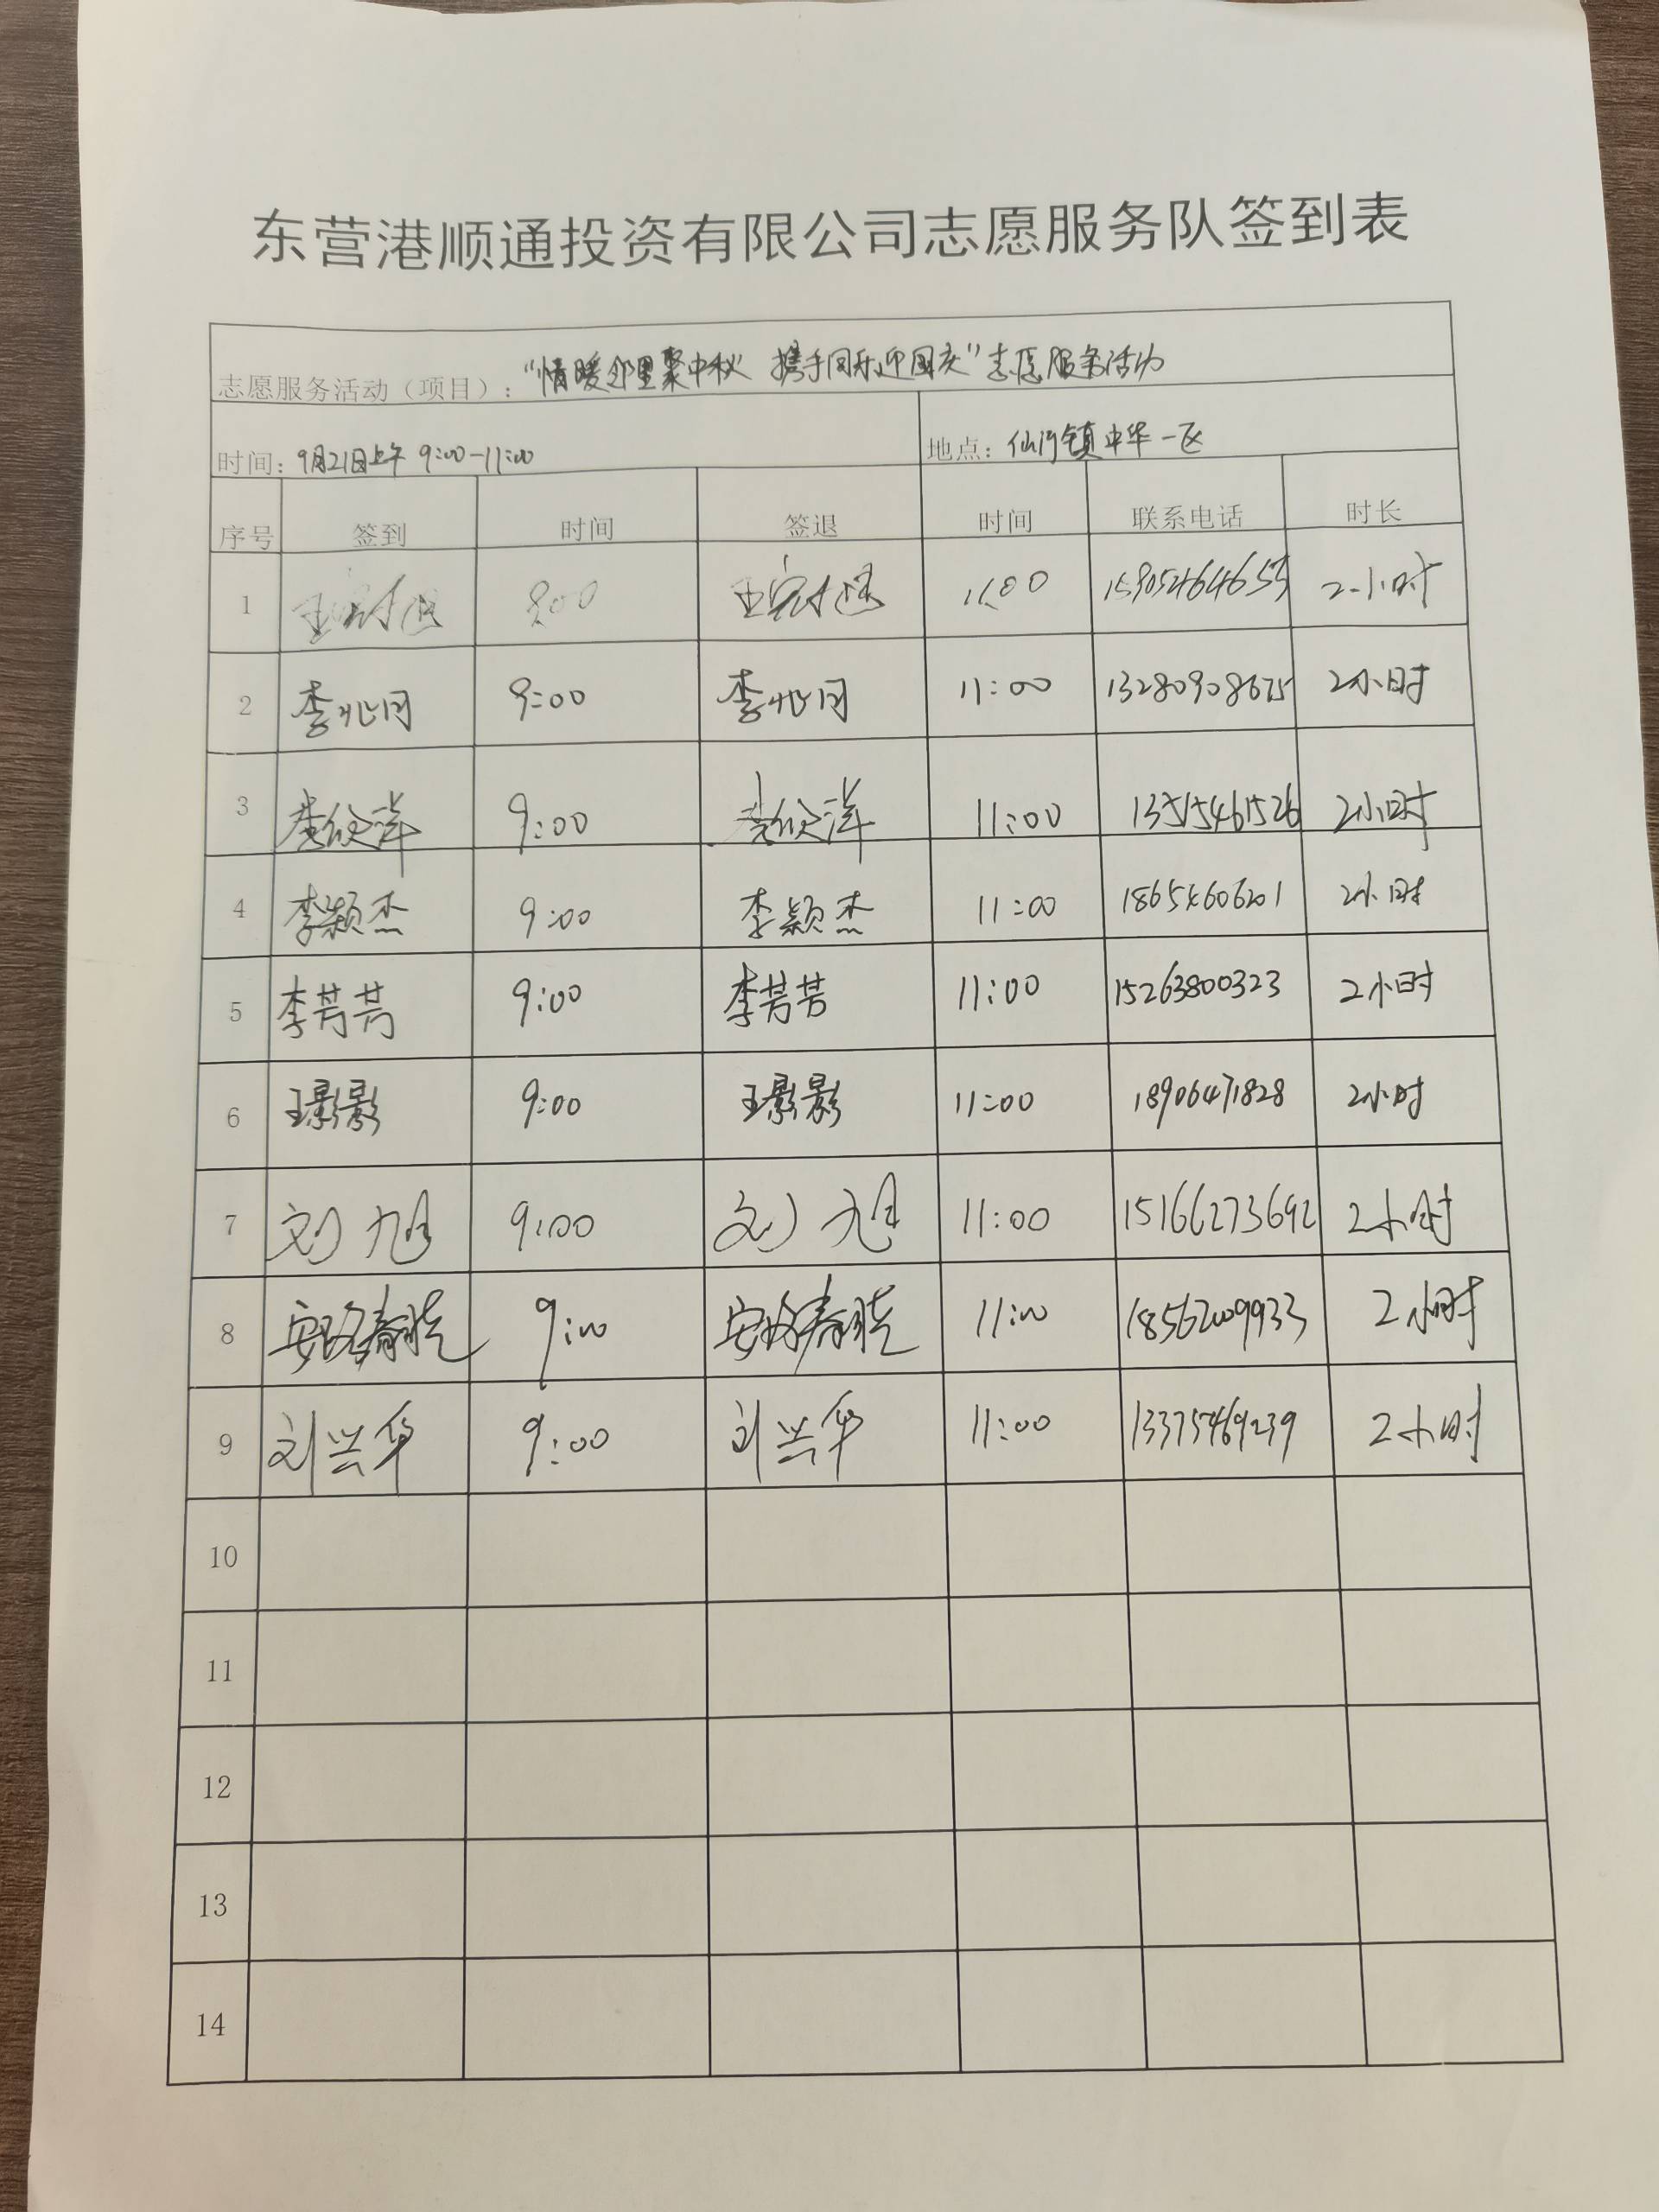 东营港顺通投资有限公司志愿服务队签到表
志愿服务活动（项目）：“情暖邻里聚中秋 携手同乐迎国庆”志愿服务活动
时间：9月21日上午 9:00-11:00 地点：仙河镇中华一区
序号 签到 时间 签退 时间 联系电话 时长
1 11:00 15905464655 2小时
2 李兆同 9:00 李兆同 11:00 13280908675 2小时
3 9:00 11:00 13515461526 2小时
4 李颖杰 9:00 李颖杰 11:00 18654606201 2小时
5 李芳芳 9:00 李芳芳 11:00 15263800323 2小时
6 王影影 9:00 王影影 11:00 18906471828 2小时
7 刘旭 9:00 刘旭 11:00 15166273692 2小时
8 9:00 11:00 18562009933 2小时
9 刘兴华 9:00 刘兴华 11:00 13375469239 2小时
10
11
12
13
14